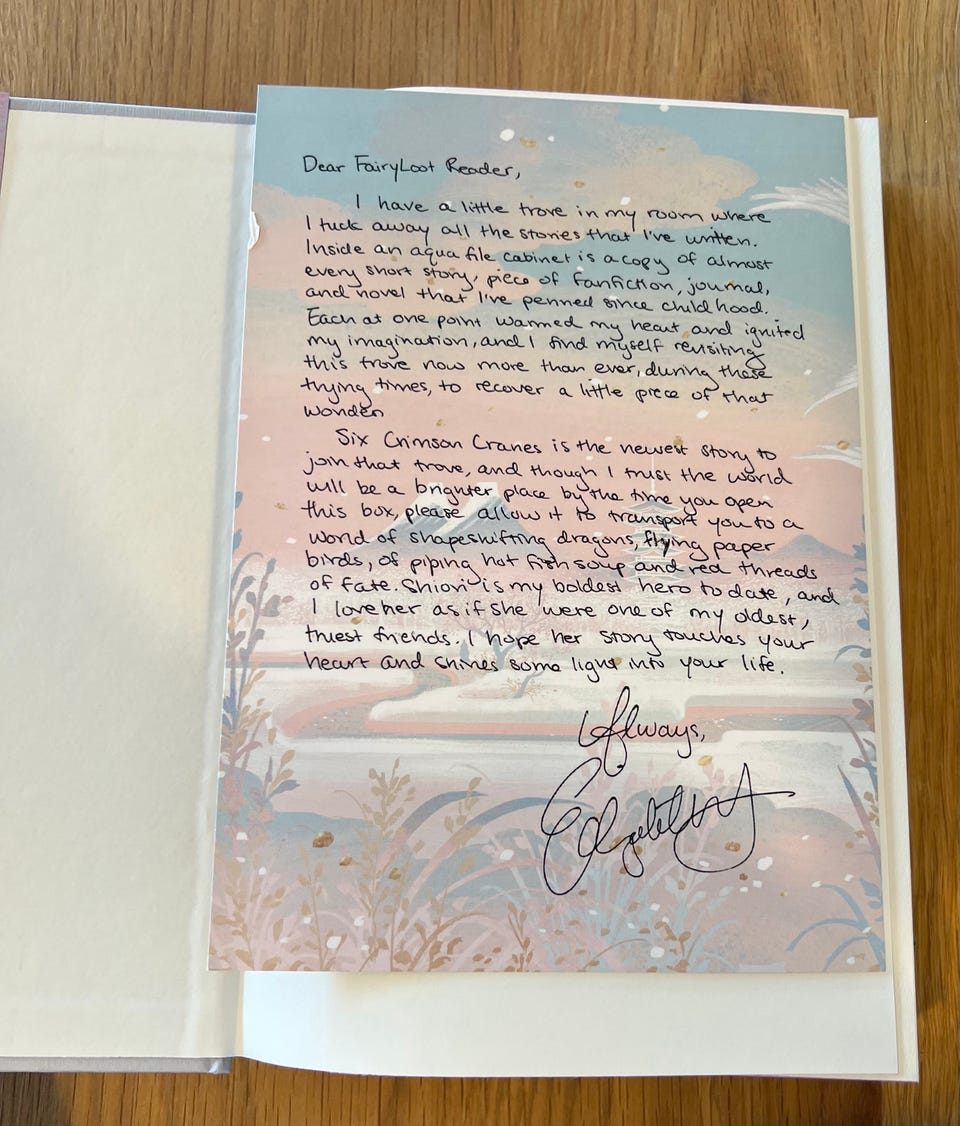 Dear FairyLoot Reader,
I have a little trove in my room where
I tuck away all the stories that I've written.
Inside an aqua file cabinet is a copy of almost
every short story, piece of fanfiction, journal,
and novel that I've penned since childhood.
Each at one point warmed my heart and ignited
my imagination, and I find myself revisiting
this trove now more than ever, during these
trying times, to recover a little piece of that
wonder.
Six Crimson Cranes is the newest story to
join that trove, and though I trust the world
will be a brighter place by the time you open
this box, please allow it to transport you to a
world of shapeshifting dragons, flying paper
birds, of piping hot fish soup and red threads
of fate. Shiori is my boldest hero to date, and
I love her as if she were one of my oldest,
truest friends. I hope her story touches your
heart and shines some light into your life.
Always,
Elizabeth